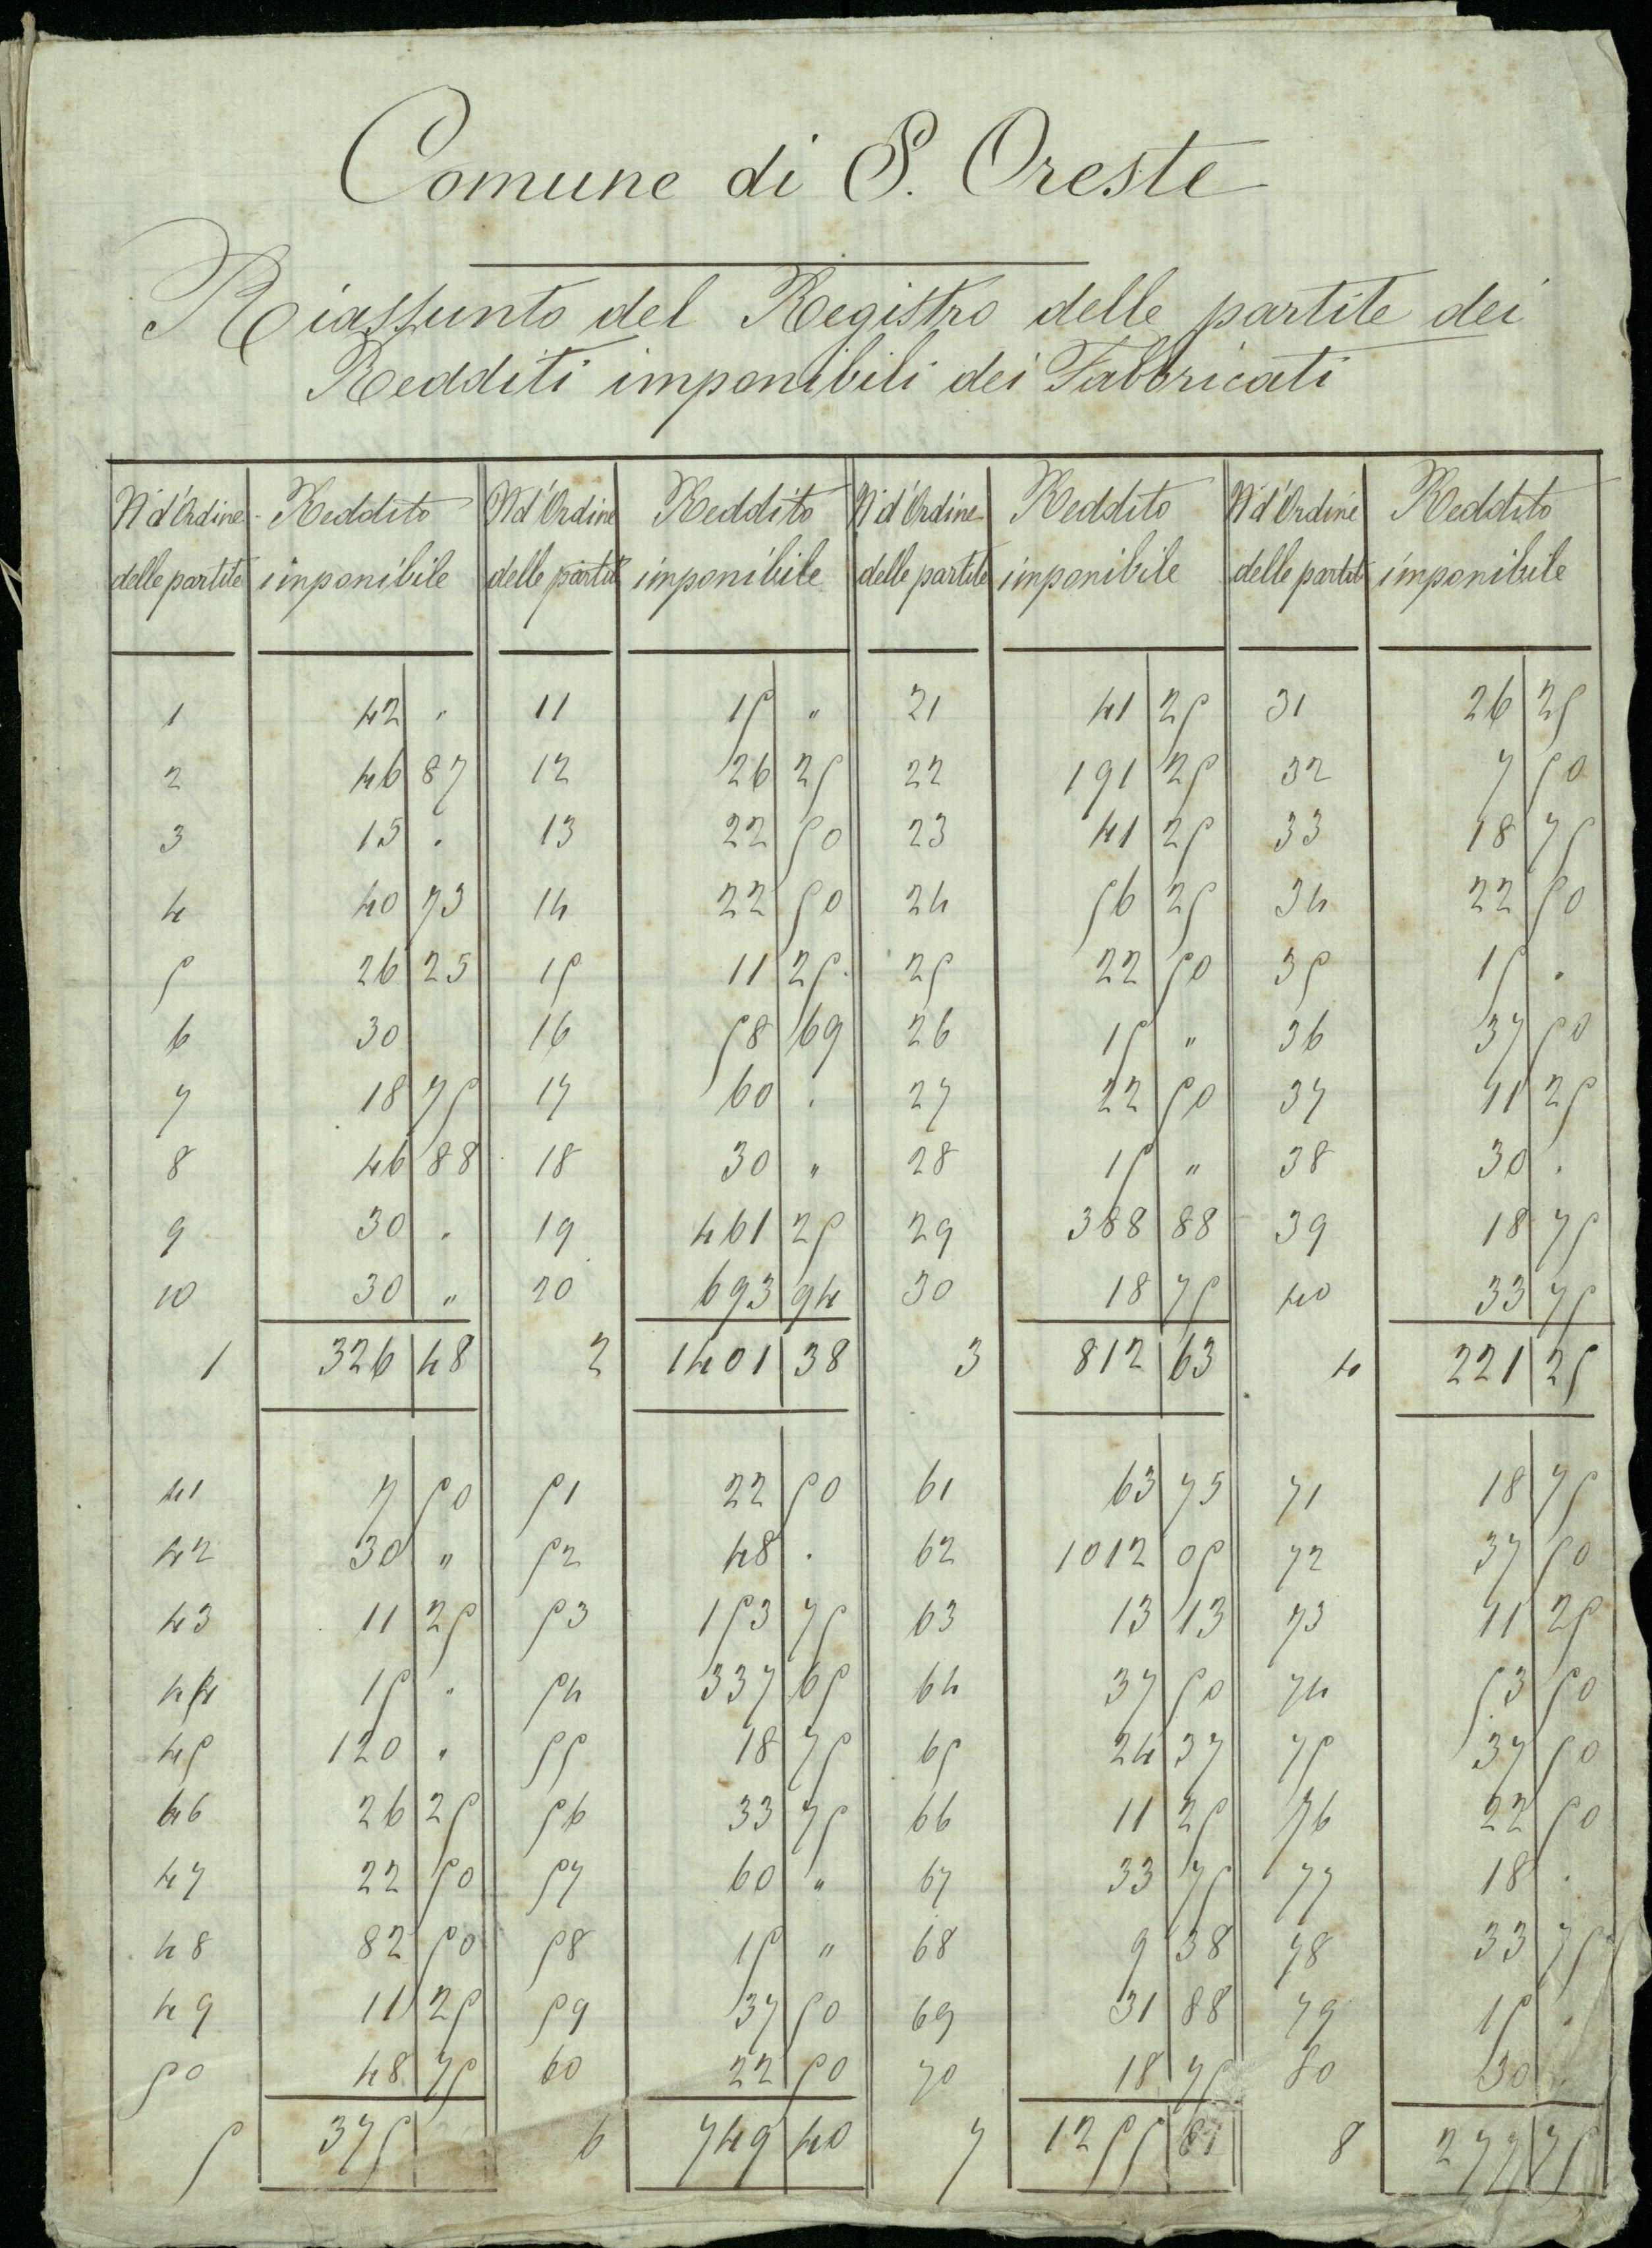 Comune di S. Oreste
Riassunto del Registro delle partite dei
Redditi imponibili dei Fabbricati
N d'Ordine Reddito N d'Ordine Reddito N d'Ordine Reddito N d'Ordine Reddito
delle partite imponibile delle partite imponibile delle partite imponibile delle partite imponibile
1 42 " 11 15 " 21 41 25 31 26 25
2 46 87 12 26 25 22 191 25 32 7 50
3 15 . 13 22 50 23 41 25 33 18 75
4 40 73 14 22 50 24 56 25 34 22 50
5 26 25 15 11 25 25 22 50 35 15 .
6 30 16 58 69 26 15 " 36 37 50
7 18 75 17 60 . 27 22 50 37 11 25
8 46 88 18 30 " 28 15 " 38 30 .
9 30 . 19 461 25 29 388 88 39 18 75
10 30 " 20 693 94 30 18 75 40 33 75
1 326 48 2 1401 38 3 812 63 4 221 25
41 7 50 51 22 50 61 63 75 71 18 75
42 30 " 52 48 . 62 1012 05 72 37 50
43 11 25 53 153 75 63 13 13 73 11 25
44 15 " 54 337 65 64 37 50 74 53 50
45 120 " 55 18 75 65 24 37 75 37 50
46 26 25 56 33 75 66 11 25 76 22 50
47 22 50 57 60 " 67 33 75 77 18 .
48 82 50 58 15 " 68 9 38 78 33 75
49 11 25 59 37 50 69 31 88 79 15 .
50 48 75 60 22 50 70 18 75 80 30 .
5 375 6 749 40 7 1255 81 8 277 75